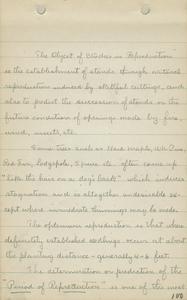 The Object of Studies in Reproduction
is the establishment of stands through natural
reproduction induced by skillful cuttings, and
also to predict the succession of stands on the
future condition of openings made by fire,
wind, insects, etc.
Some trees such as Hard Maple, Wh. Pine,
Red Fir, Lodgepole, Spruce etc. often come up
"like the hair on a dog's back" which induces
stagnation and is altogether undesirable ex-
cept where immediate thinnings may be made.
The optimum reproduction is that where
definitely established seedlings occur at about
the planting distance - generally 4-6 feet.
The determination or prediction of the
"Period of Reproduction" is one of the most